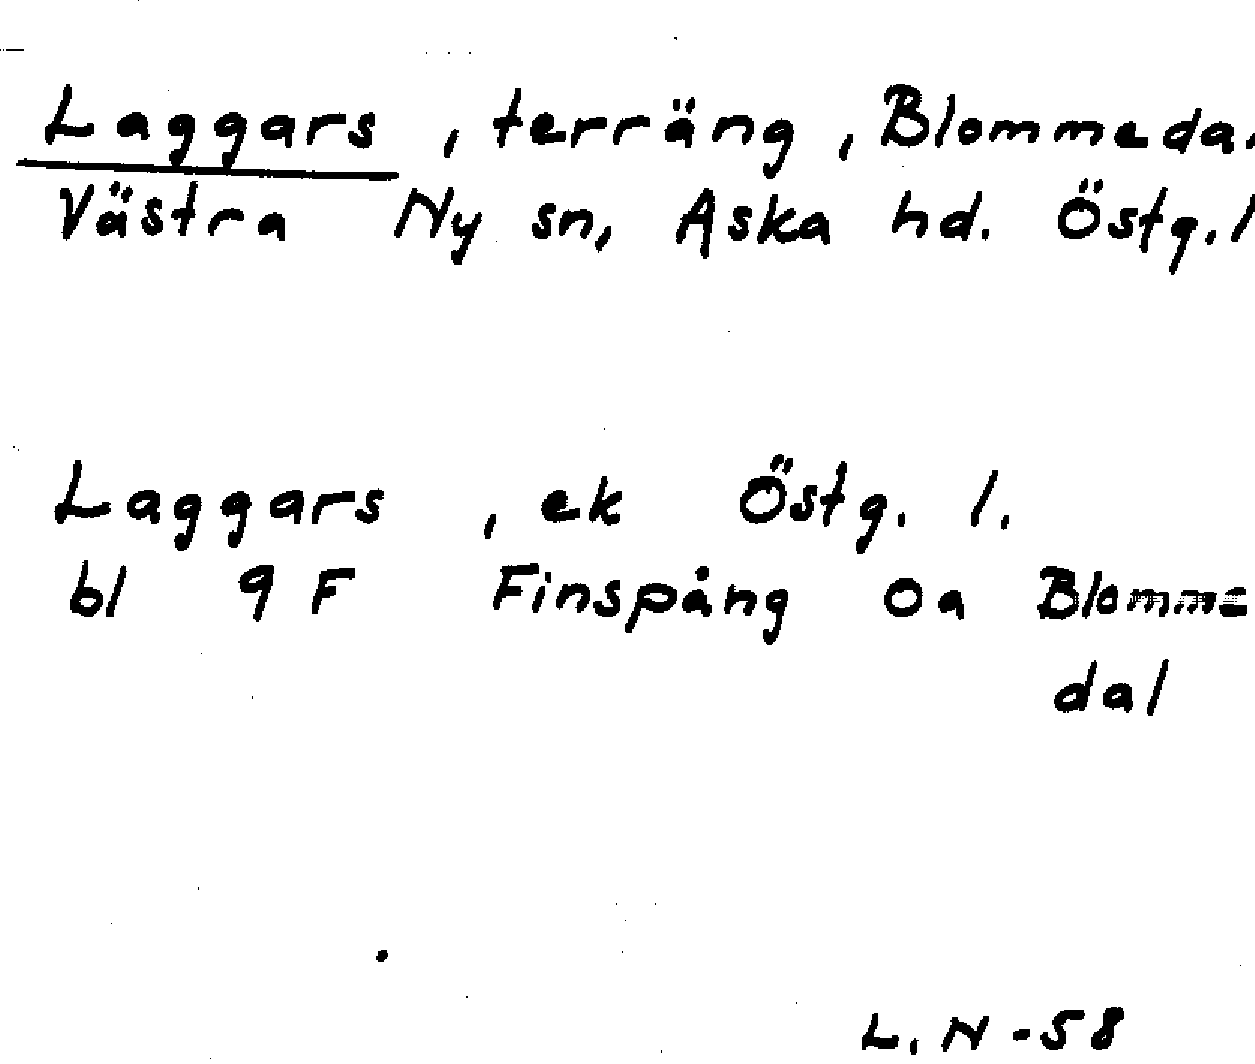 Laggars, terräng, Blommeda
Västra Ny sn, Aska hd. Östg. l
Laggars, ek Östg. l.
bl 9 F Finspång 0a Blomme
dal
L. N - 58